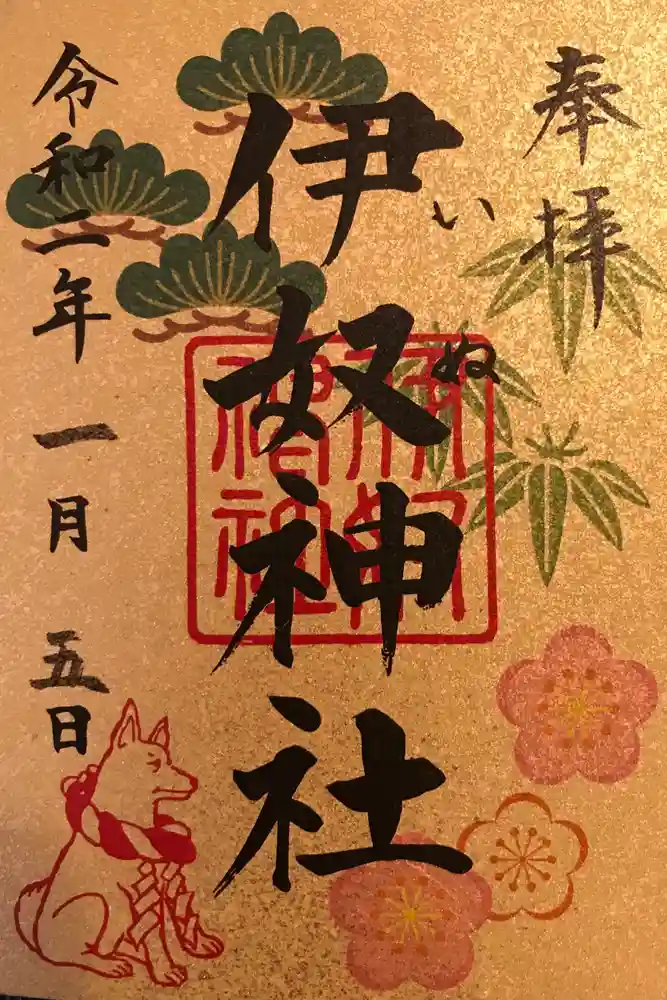 奉拝
伊奴神社
いぬ
令和二年一月五日
伊奴
神社